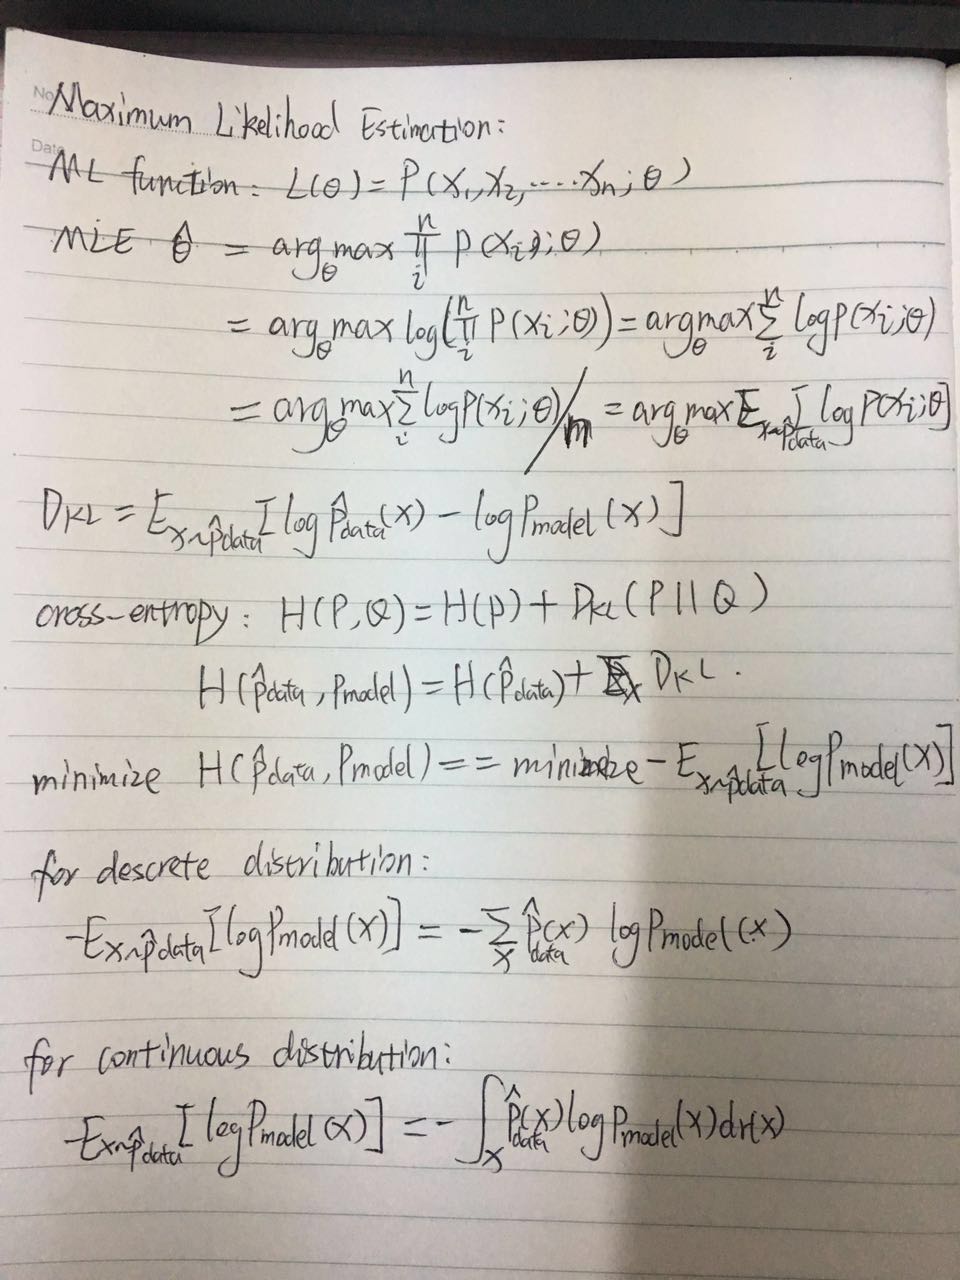 No
Maximum Likelihood Estimation:
Date
ML function: L(θ) = P(x₁, x₂, ..... xₙ; θ)
MLE θ̂ = arg max_θ ∏_i^n P(xᵢ; θ)
= arg max_θ log(∏_i^n P(xᵢ; θ)) = arg max_θ ∑_i^n log P(xᵢ; θ)
= arg max_θ ∑_i^n log P(xᵢ; θ) / m = arg max_θ E_{x∼p̂data} [log P(xᵢ; θ)]
D_KL = E_{x∼p̂data} [log p̂data(x) − log Pmodel(x)]
cross-entropy: H(P, Q) = H(P) + D_KL(P || Q)
H(p̂data, Pmodel) = H(p̂data) + D_KL.
minimize H(p̂data, Pmodel) == minimize −E_{x∼p̂data} [log Pmodel(x)]
for descrete distribution:
−E_{x∼p̂data} [log Pmodel(x)] = −∑_x p̂data(x) log Pmodel(x)
for continuous distribution:
−E_{x∼p̂data} [log Pmodel(x)] = −∫_X p̂data(x) log Pmodel(x) dr(x)